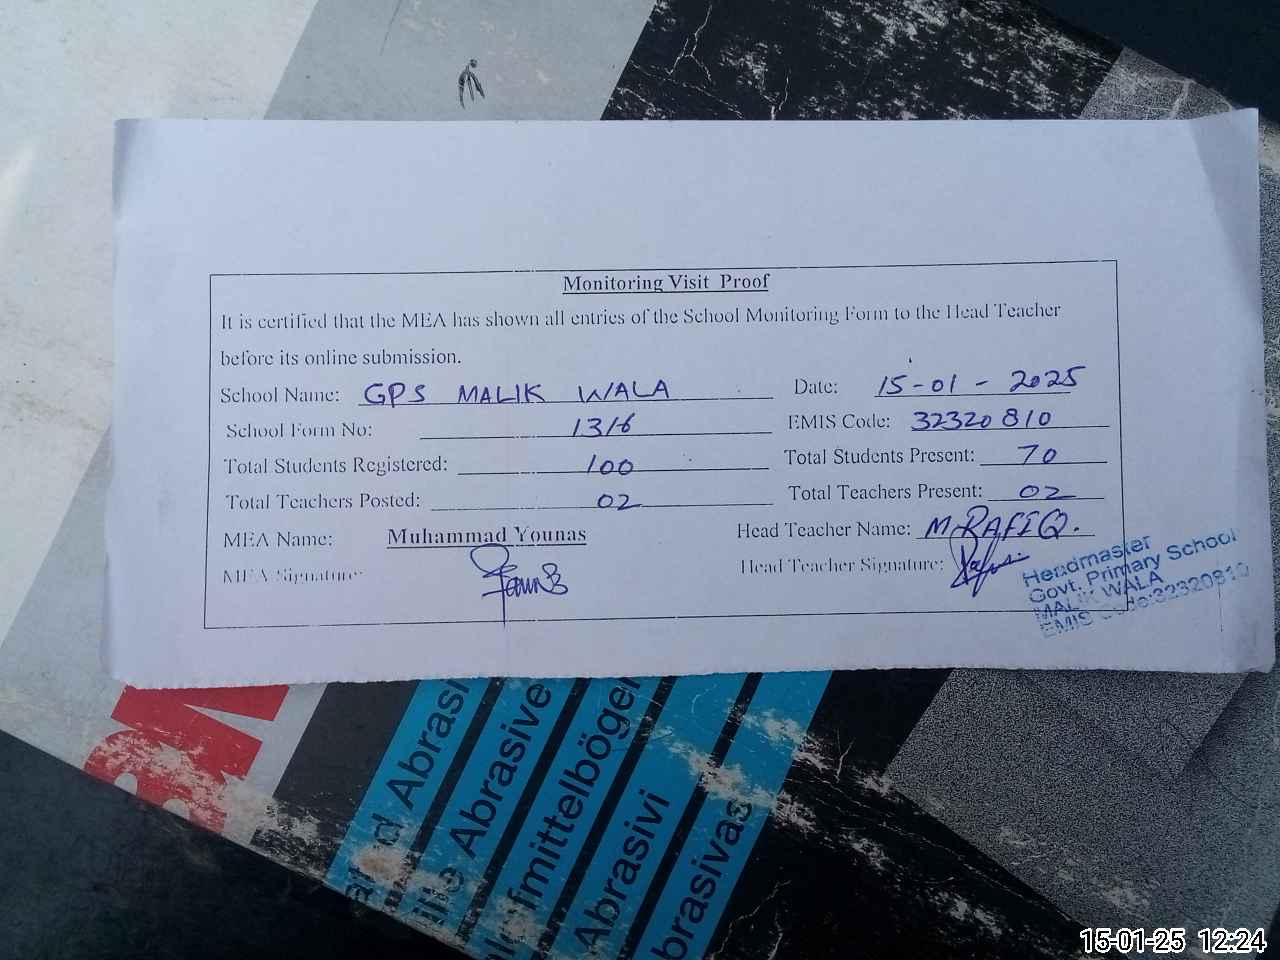 Monitoring Visit Proof
It is certified that the MEA has shown all entries of the School Monitoring Form to the Head Teacher
before its online submission.
School Name: GPS MALIK WALA Date: 15-01-2025
School Form No: 1316 EMIS Code: 32320810
Total Students Registered: 100 Total Students Present: 70
Total Teachers Posted: 02 Total Teachers Present: 02
MEA Name: Muhammad Younas Head Teacher Name: M. RAFIQ.
MEA Signature: Head Teacher Signature:
Headmaster
Govt. Primary School
MALIK WALA
EMIS Code:32320810
3M
Abrasi
Abrasive
fmittelbögen
Abrasivi
brasivas
15-01-25 12:24